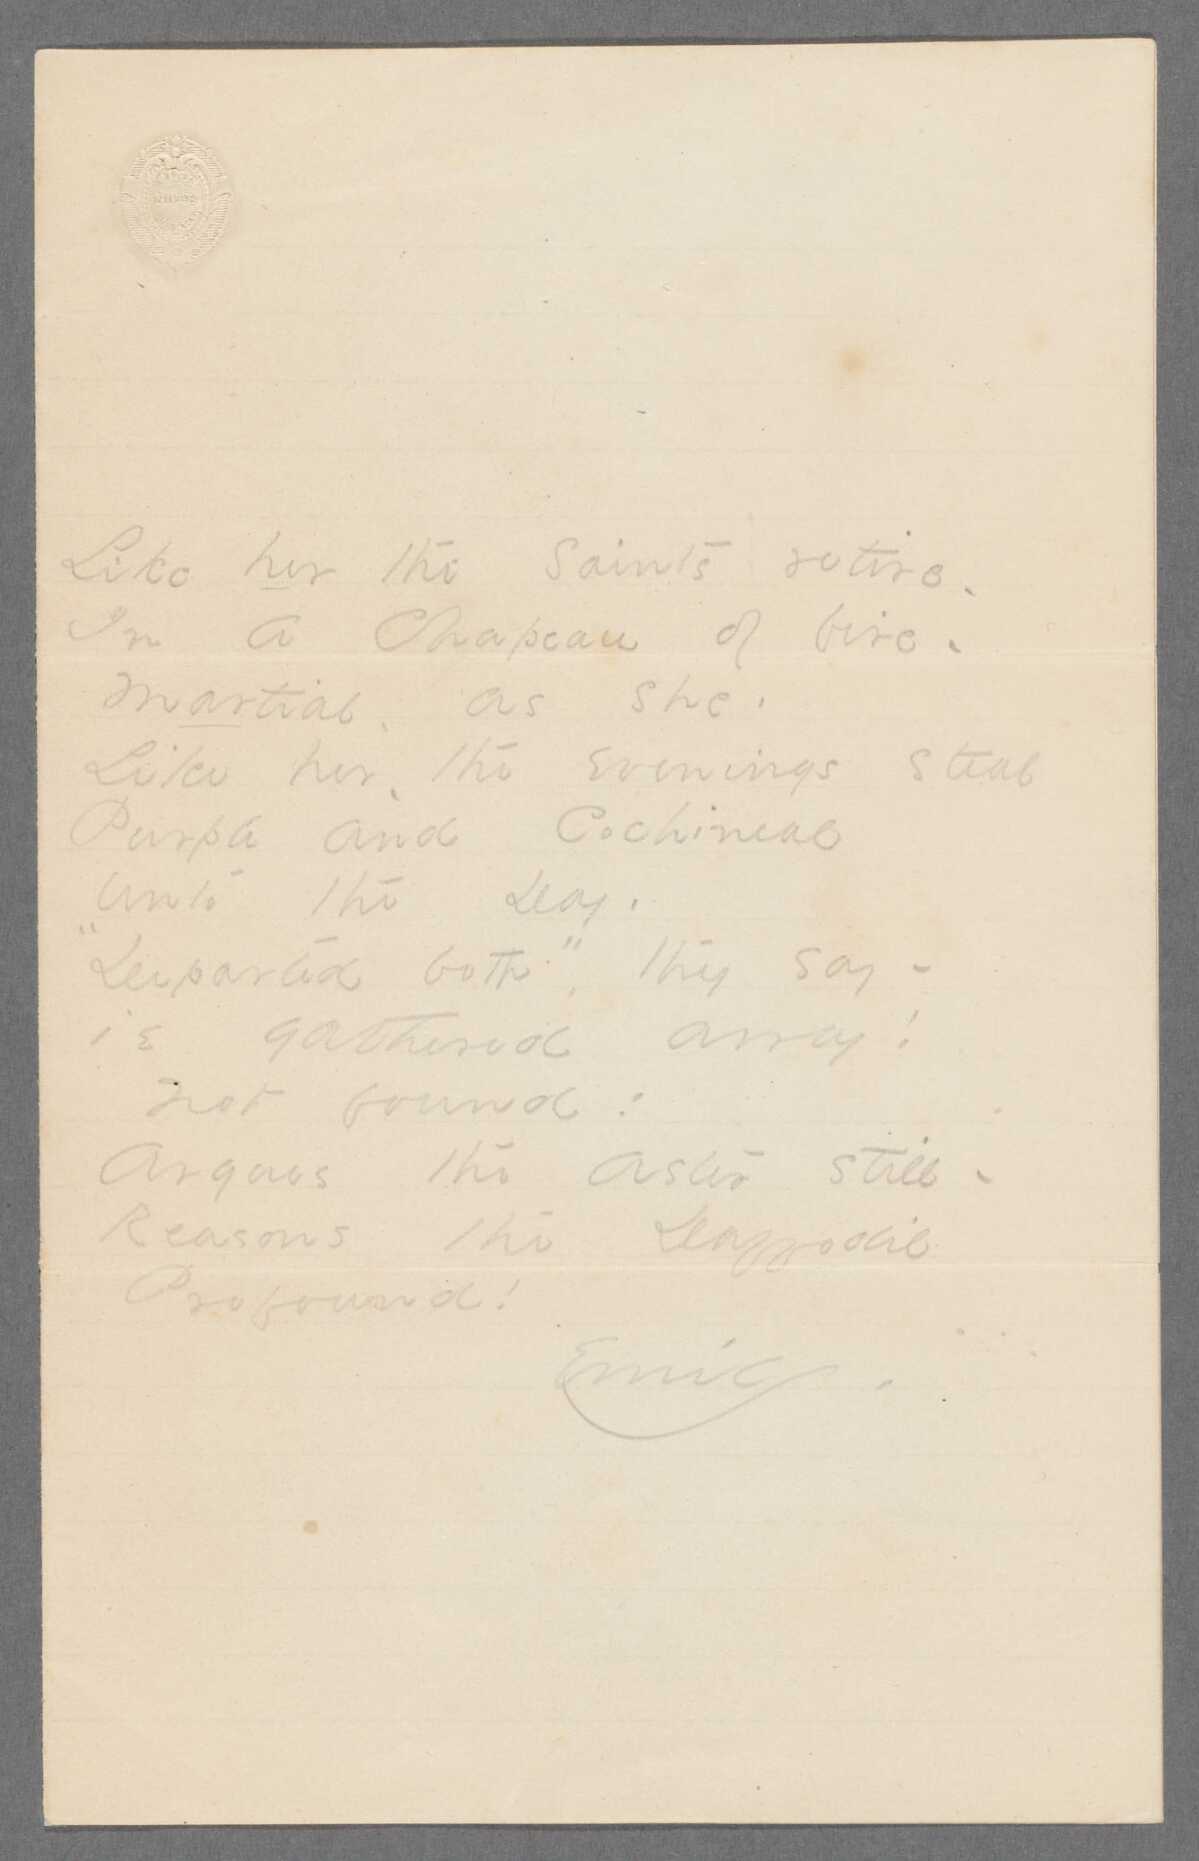 Like her the Saints retire,
In a Chapeau of fire,
Martial, as she.
Like her, the Evenings steal
Purple and Cochineal
Unto the Day.
"Departed both", they say -
is gathered away!
not found:
Argues the Aster still -
Reasons the Daffodil
Profound!
Emily.